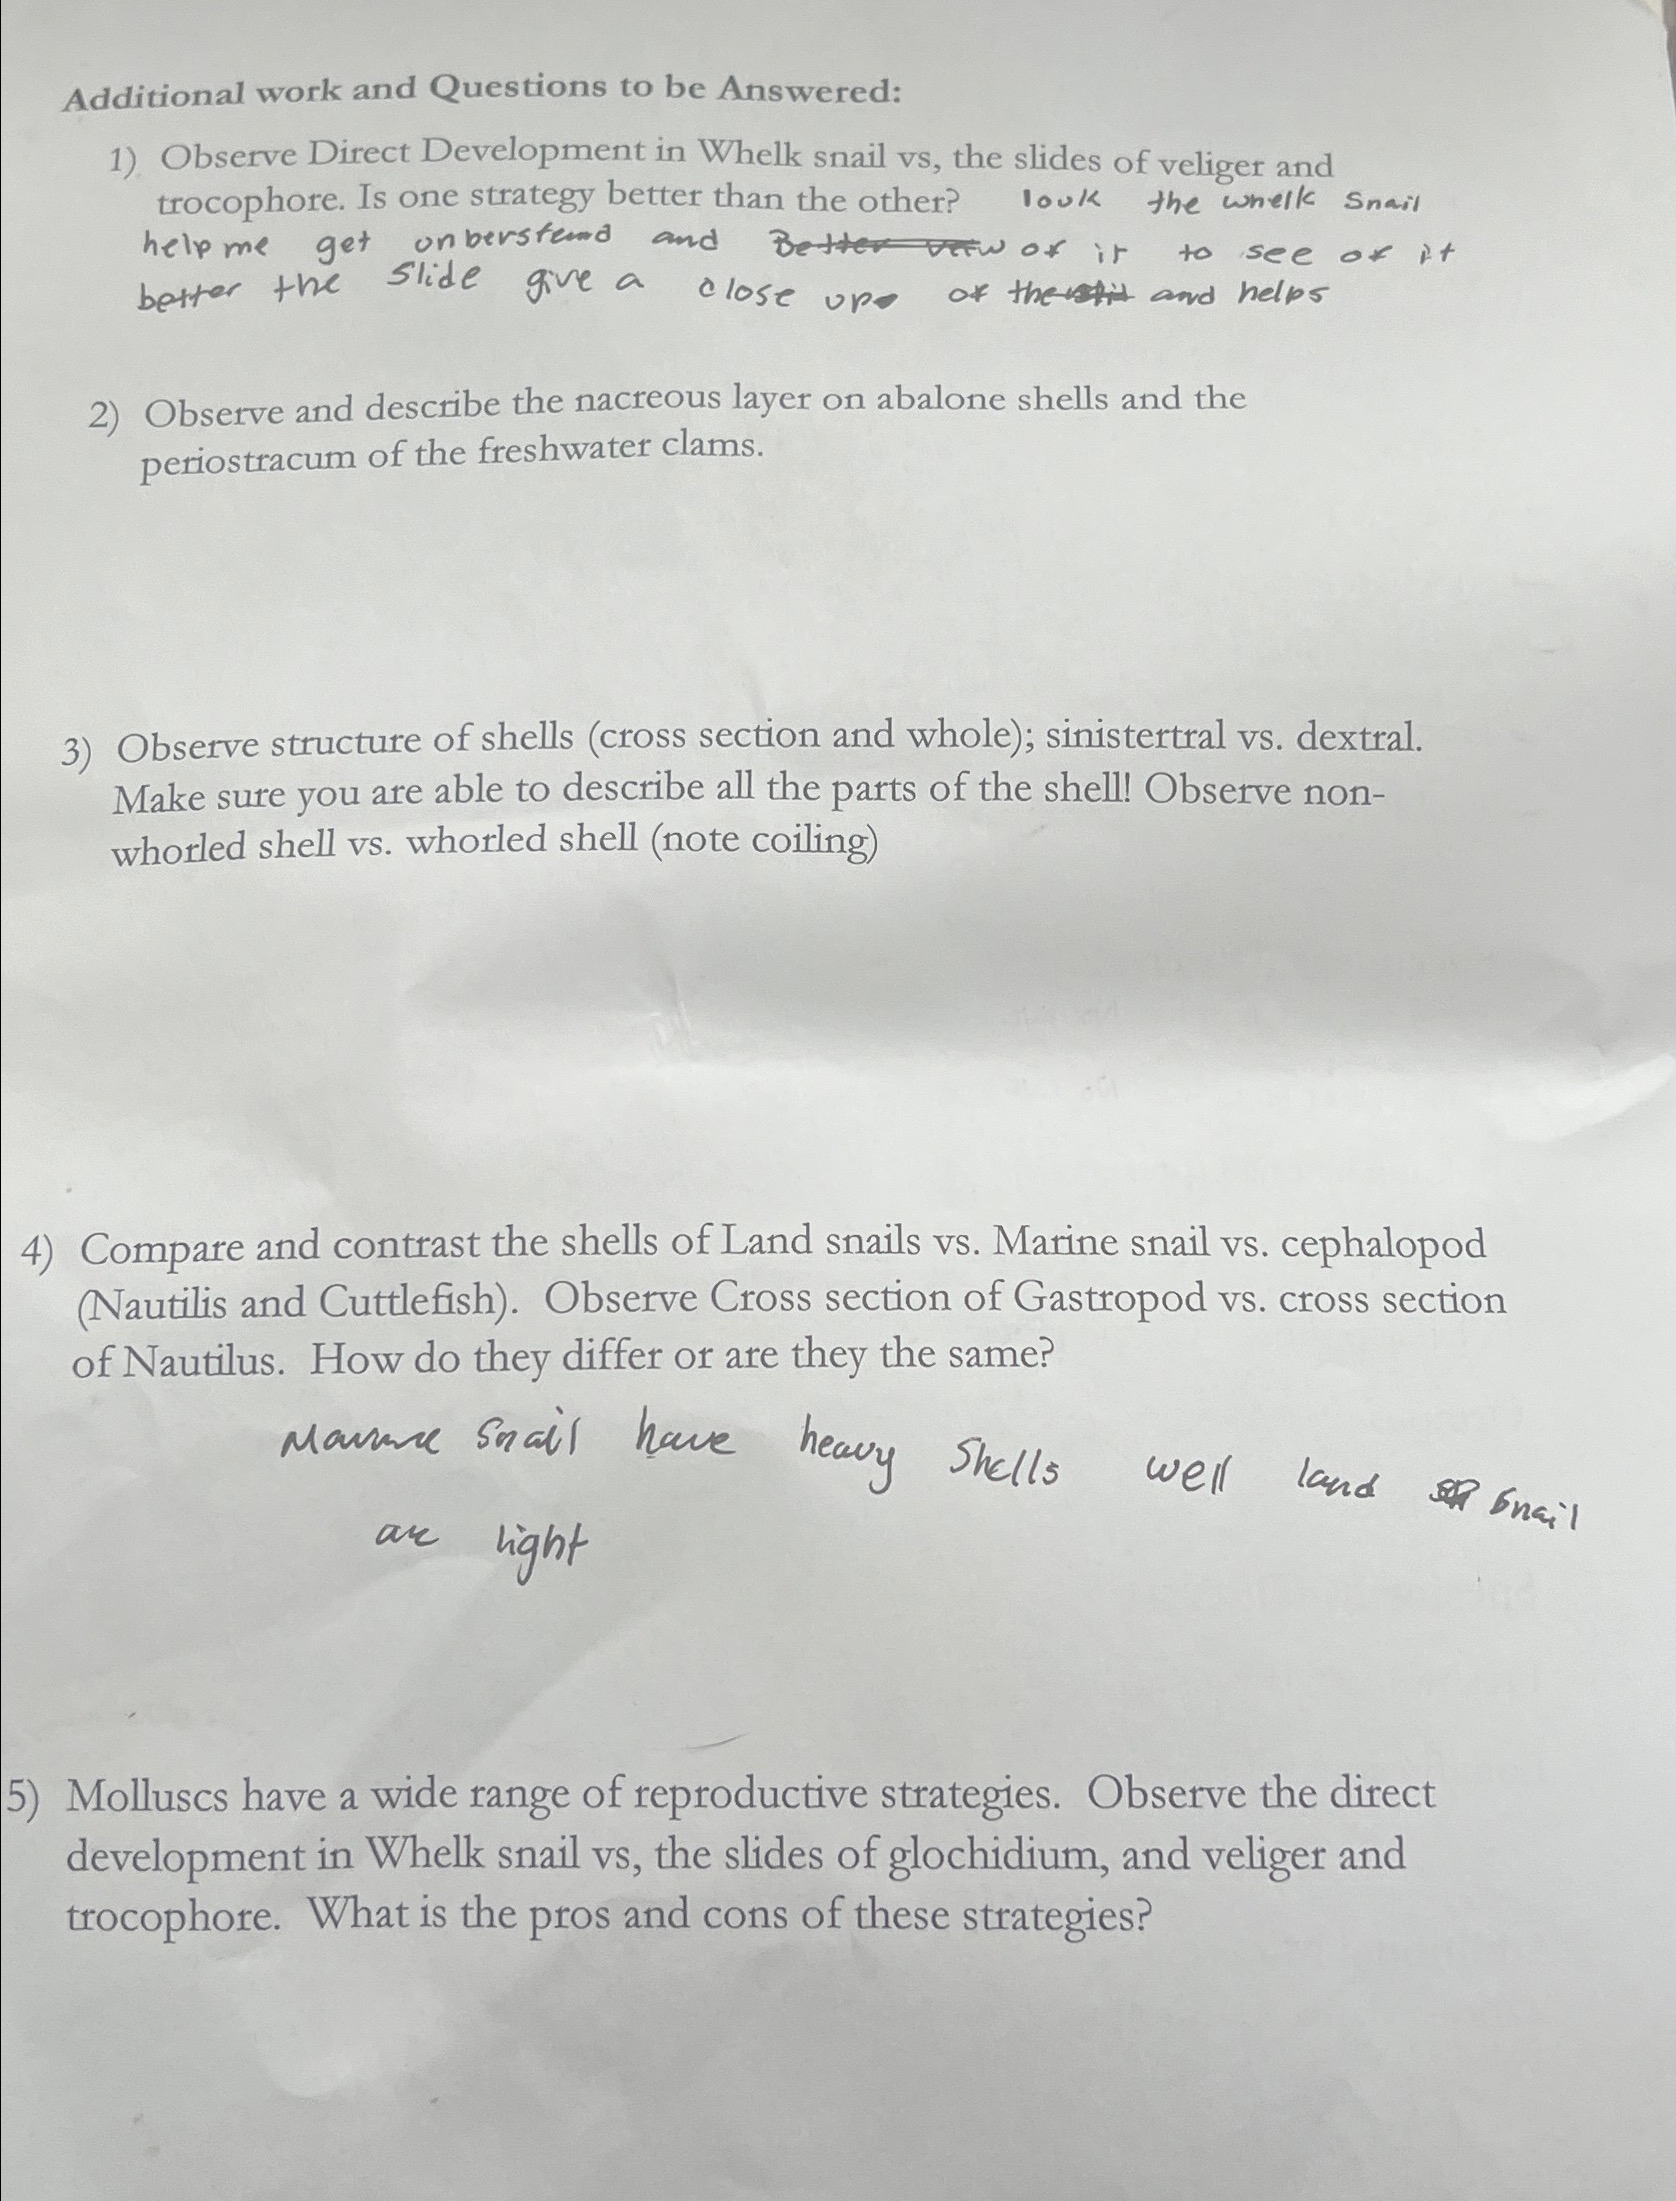 Additional work and Questions to be Answered:
1) Observe Direct Development in Whelk snail vs, the slides of veliger and
trocophore. Is one strategy better than the other? look the whelk snail
help me get onberstend and Better veiw of it to see of it
better the slide give a close up of the and helps
2) Observe and describe the nacreous layer on abalone shells and the
periostracum of the freshwater clams.
3) Observe structure of shells (cross section and whole); sinistertral vs. dextral.
Make sure you are able to describe all the parts of the shell! Observe non-
whorled shell vs. whorled shell (note coiling)
4) Compare and contrast the shells of Land snails vs. Marine snail vs. cephalopod
(Nautilis and Cuttlefish). Observe Cross section of Gastropod vs. cross section
of Nautilus. How do they differ or are they the same?
snail have heavy shells well land snail
are light
5) Molluscs have a wide range of reproductive strategies. Observe the direct
development in Whelk snail vs, the slides of glochidium, and veliger and
trocophore. What is the pros and cons of these strategies?